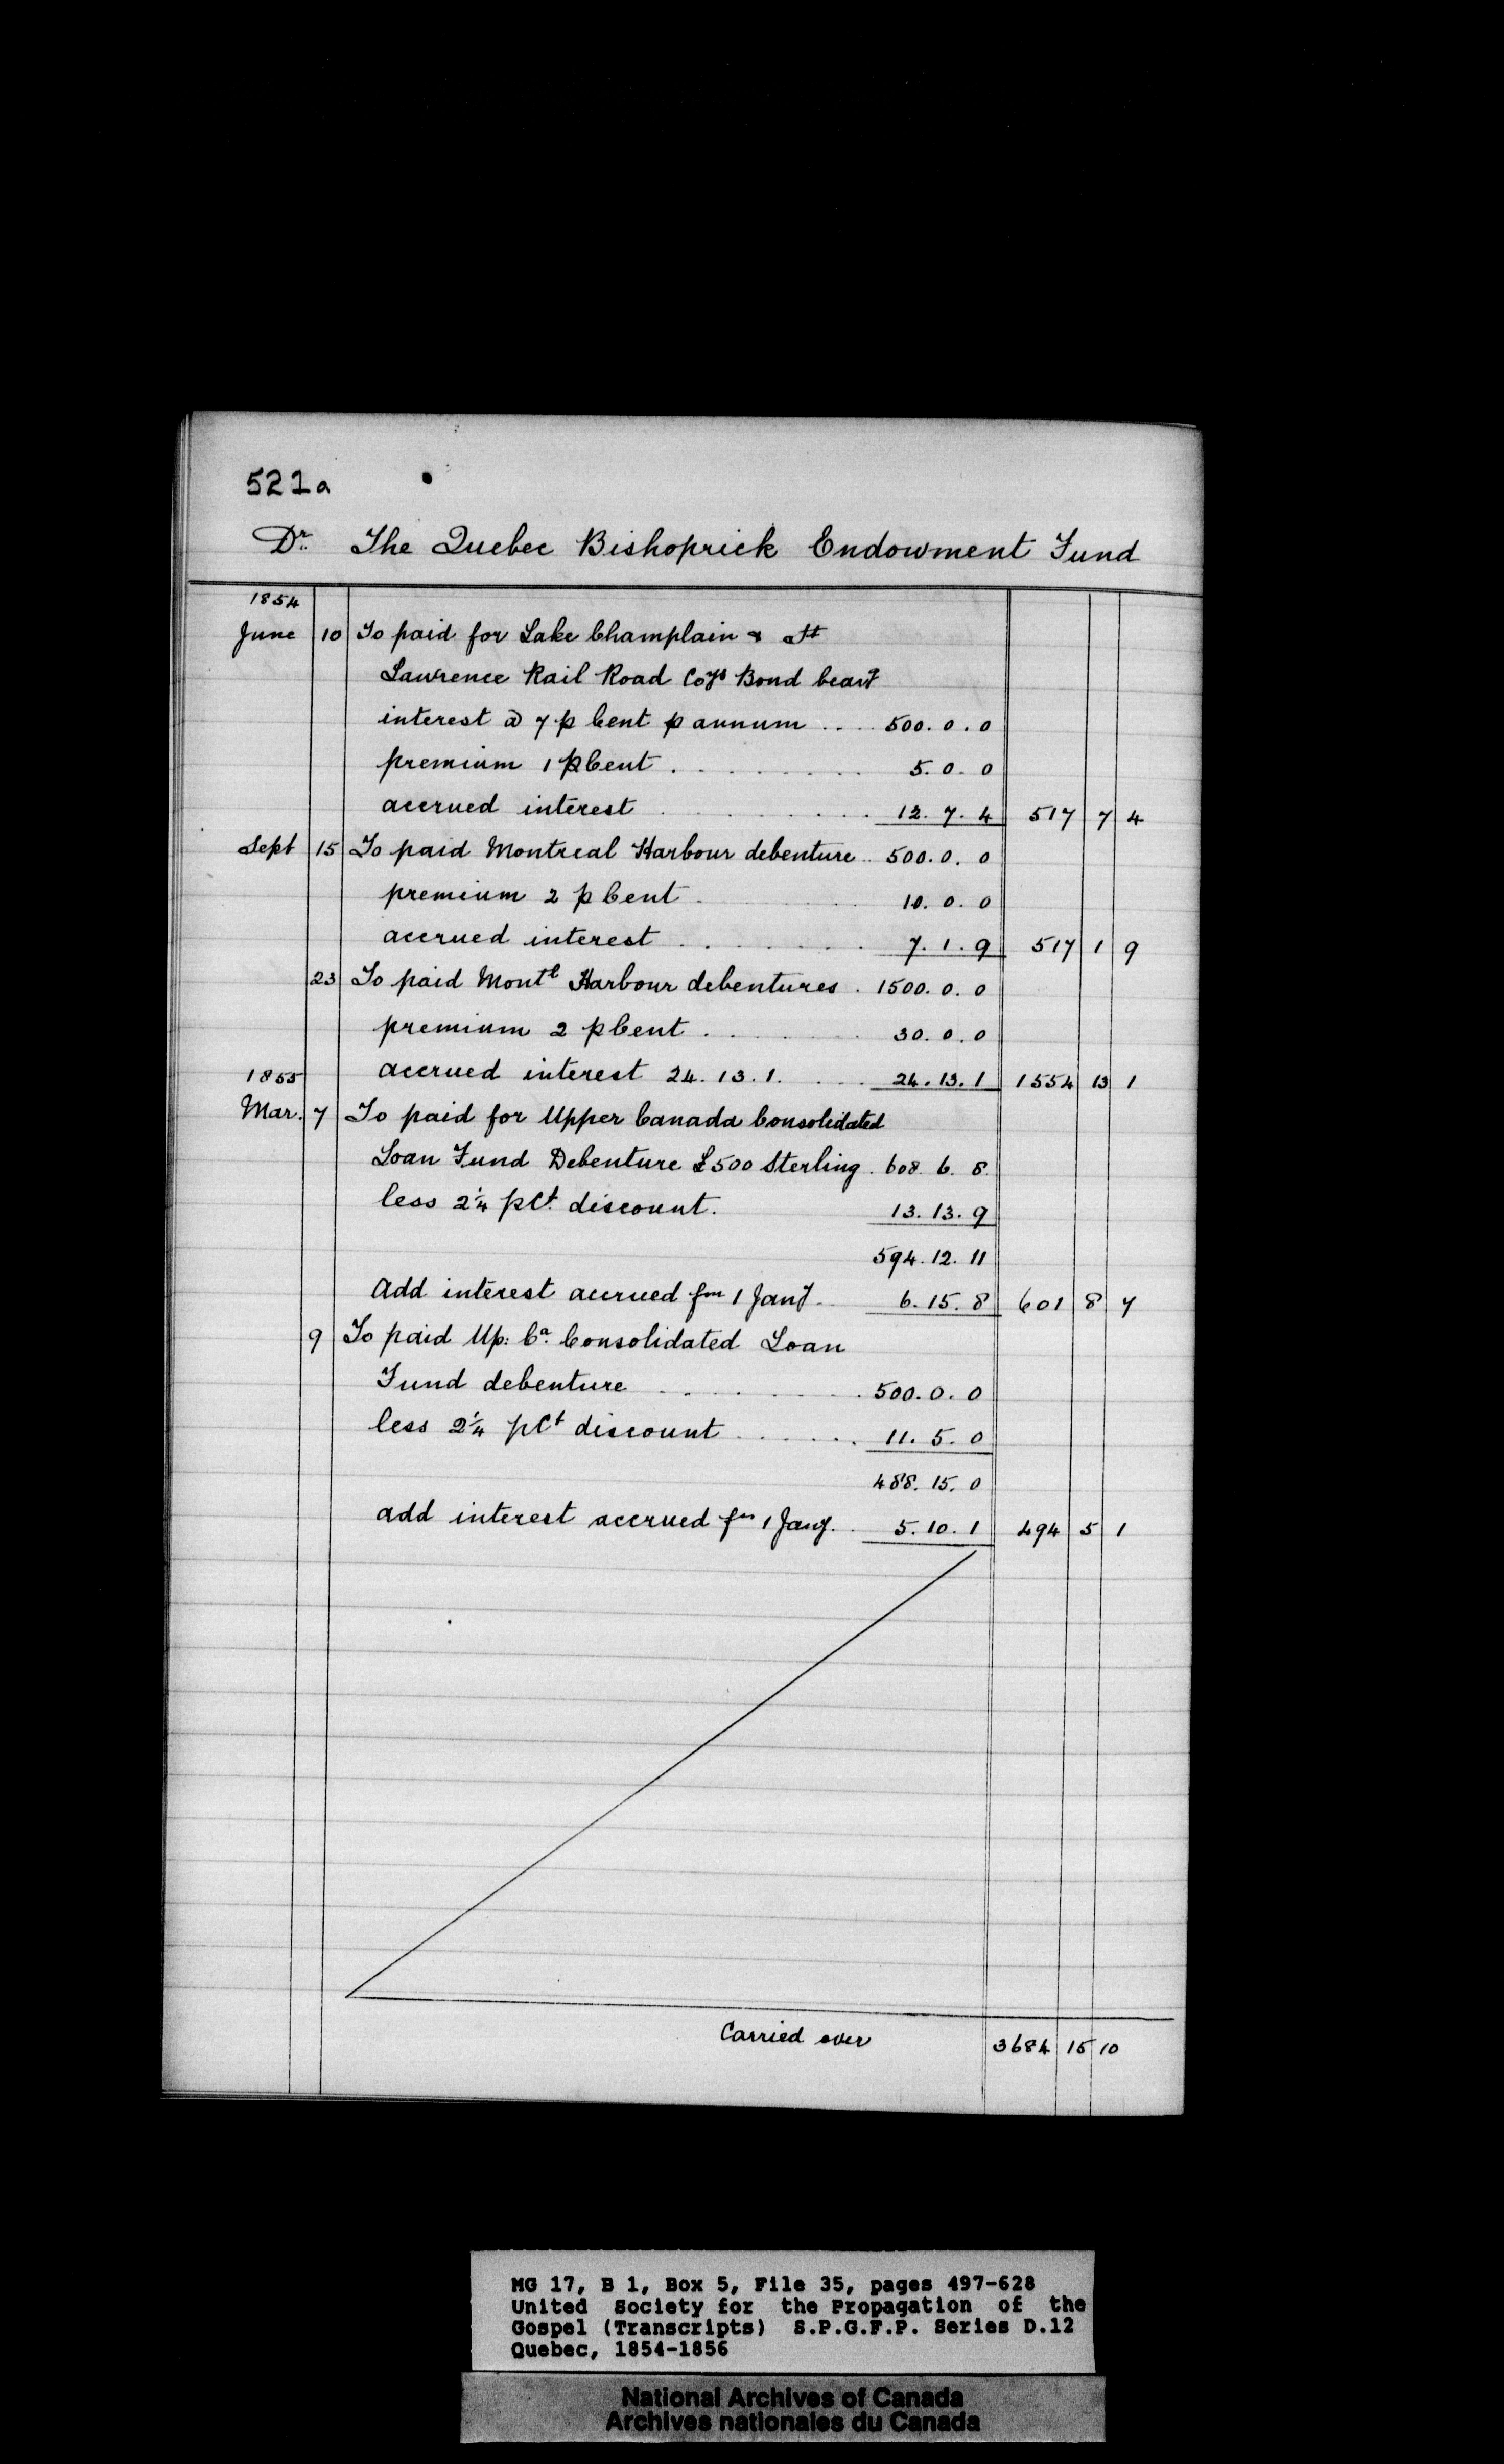 521a
Dr. The Quebec Bishoprick Endowment Fund
1854
June 10 To paid for Lake Champlain & St
Lawrence Rail Road Coys Bond bearg
interest @ 7 p Cent p annum .... 500. 0. 0
premium 1 p Cent . . . . . . . 5. 0. 0
accrued interest . . . . . . . 12. 7. 4 517 7 4
Sept 15 To paid Montreal Harbour debenture .. 500. 0. 0
premium 2 p Cent . . . . 10. 0. 0
accrued interest . . . . . . 7. 1. 9 517 1 9
23 To paid Montl Harbour debentures . 1500. 0. 0
premium 2 p Cent . . . . . 30. 0. 0
1855 accrued interest 24. 13. 1. . . . 24. 13. 1 1554 13 1
Mar. 7 To paid for Upper Canada Consolidated
Loan Fund Debenture £500 Sterling . 608. 6. 8.
less 2¼ p Ct. discount. 13. 13. 9
594. 12. 11
Add interest accrued fm 1 Jany . . 6. 15. 8 601 8 7
9 To paid Up: Ca. Consolidated Loan
Fund debenture . . . . . . . 500. 0. 0
less 2¼ p Ct discount . . . . . 11. 5. 0
488. 15. 0
add interest accrued fm 1 Jany. . . 5. 10. 1 494 5 1
Carried over 3684 15 10
MG 17, B 1, Box 5, File 35, pages 497-628
United Society for the Propagation of the
Gospel (Transcripts) S.P.G.F.P. Series D.12
Quebec, 1854-1856
National Archives of Canada
Archives nationales du Canada